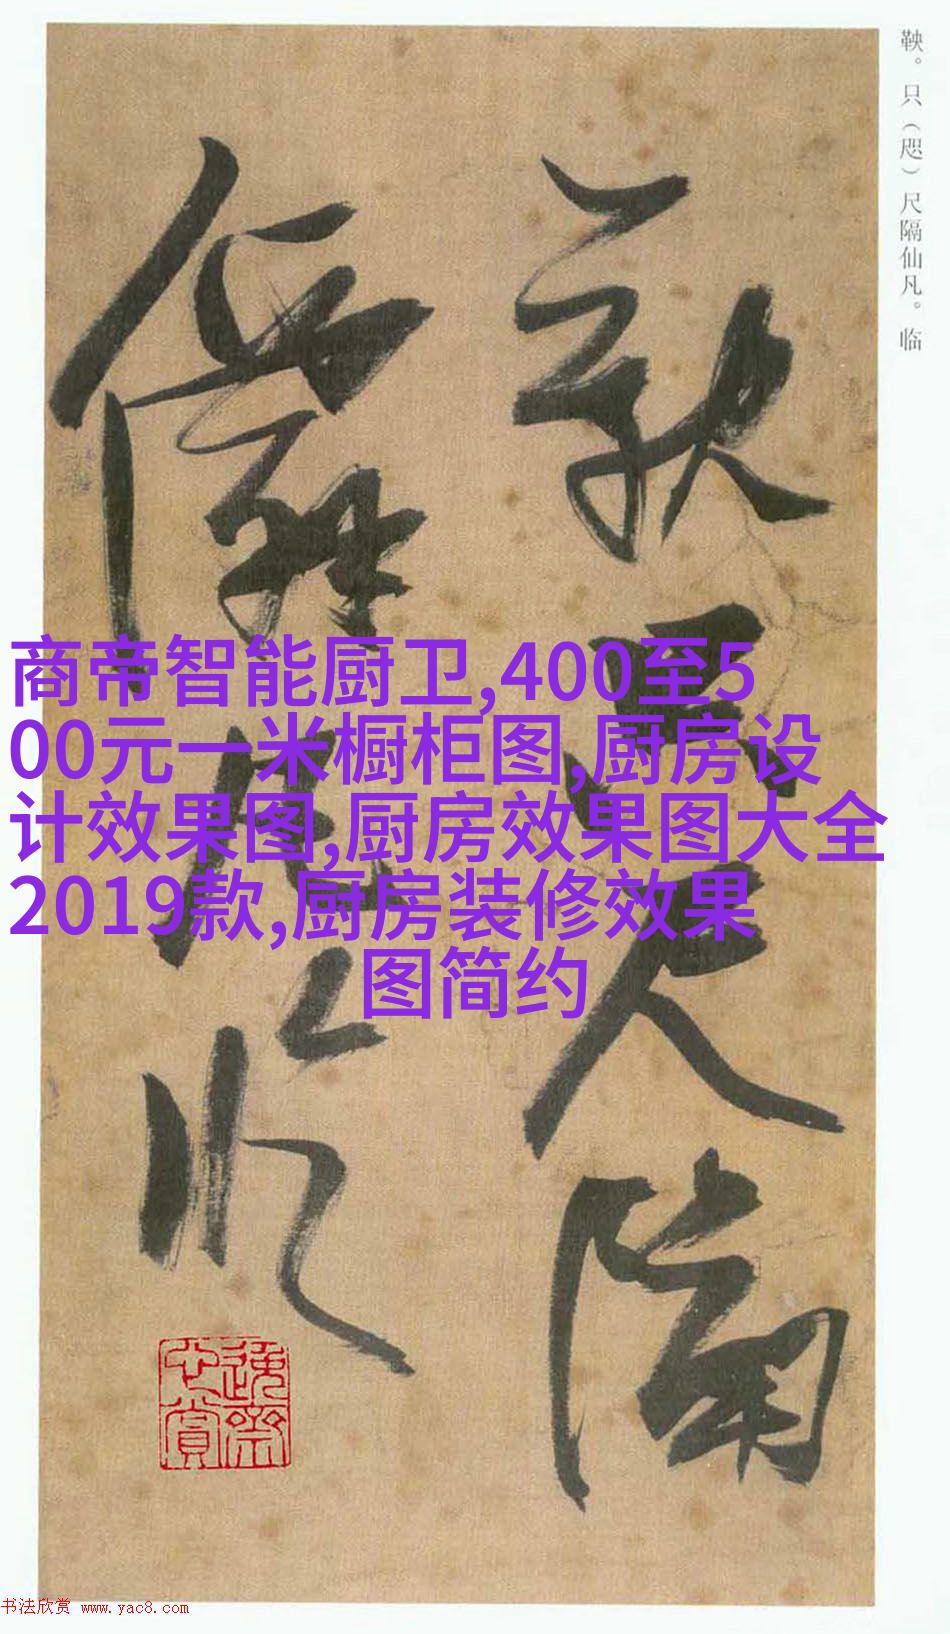 鞅。只（咫）尺隔仙凡。临
歎只尺隔
僊凡临
商帝智能厨卫,400至5
00元一米橱柜图,厨房设
计效果图,厨房效果图大全
2019款,厨房装修效果
图简约
书法欣赏 www.yac8.com